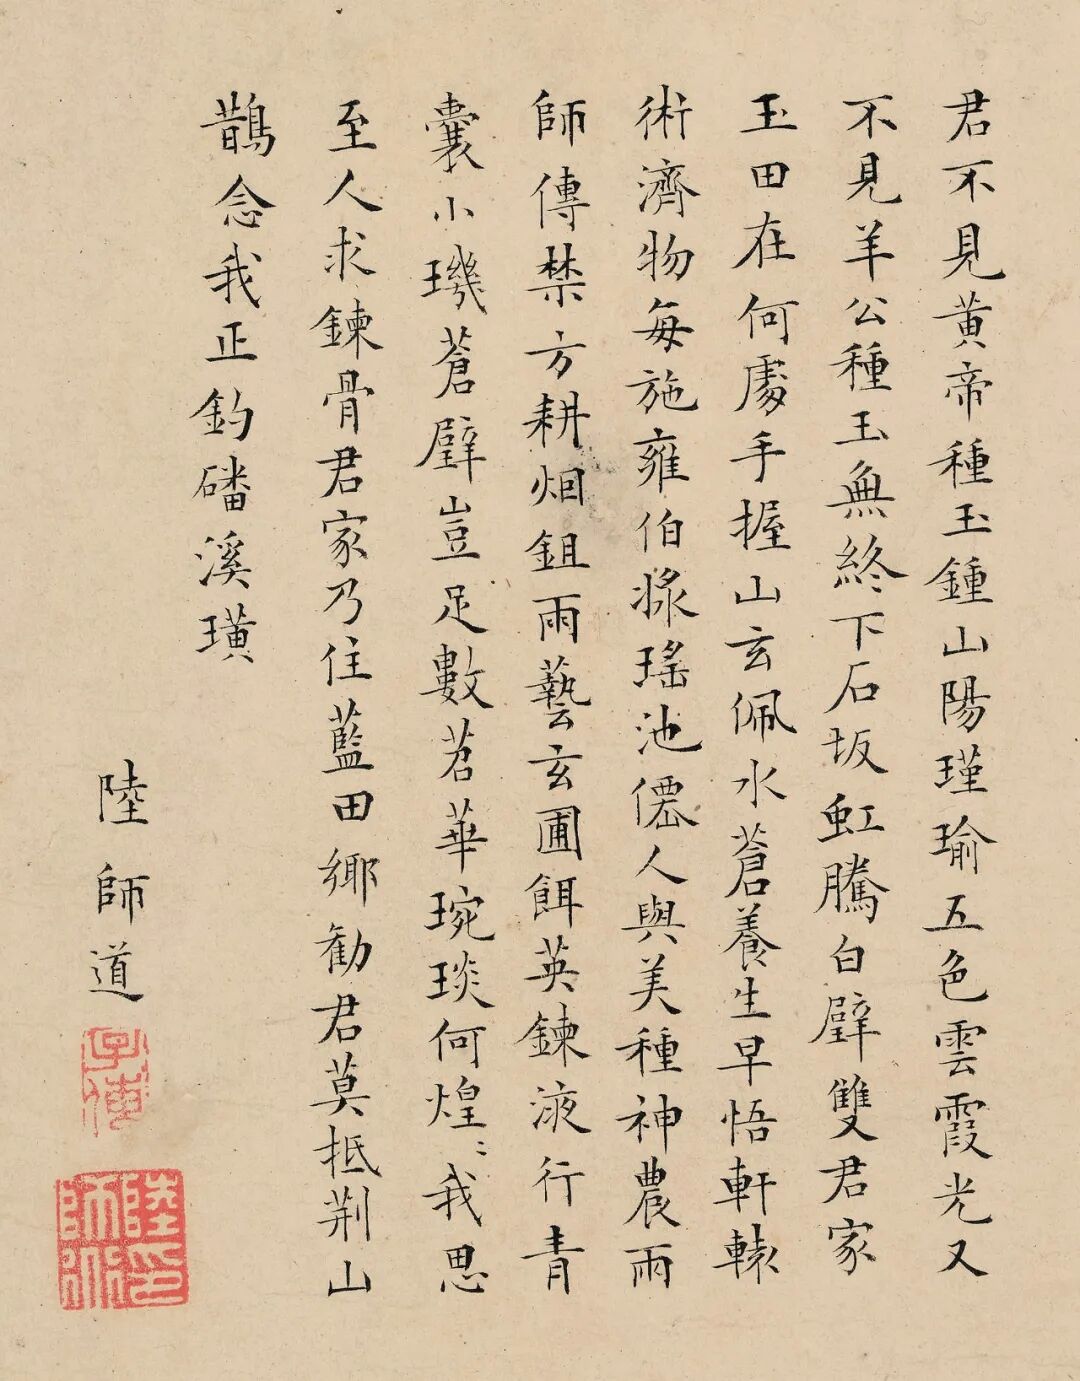 君不見黃帝種玉鍾山陽瑾瑜五色雲霞光又
不見羊公種玉無終下石坂虹騰白璧雙君家
玉田在何處手握山玄佩水蒼養生早悟軒轅
術濟物每施雍伯漿瑤池僊人與美種神農雨
師傳禁方耕烟鉏雨藝玄圃餌英鍊液行青
囊小璣蒼璧豈足數苕華琬琰何煌〻我思
至人求鍊骨君家乃住藍田鄉勸君莫抵荆山
鵲念我正釣磻溪璜
陸師道
子傳
陸師道印